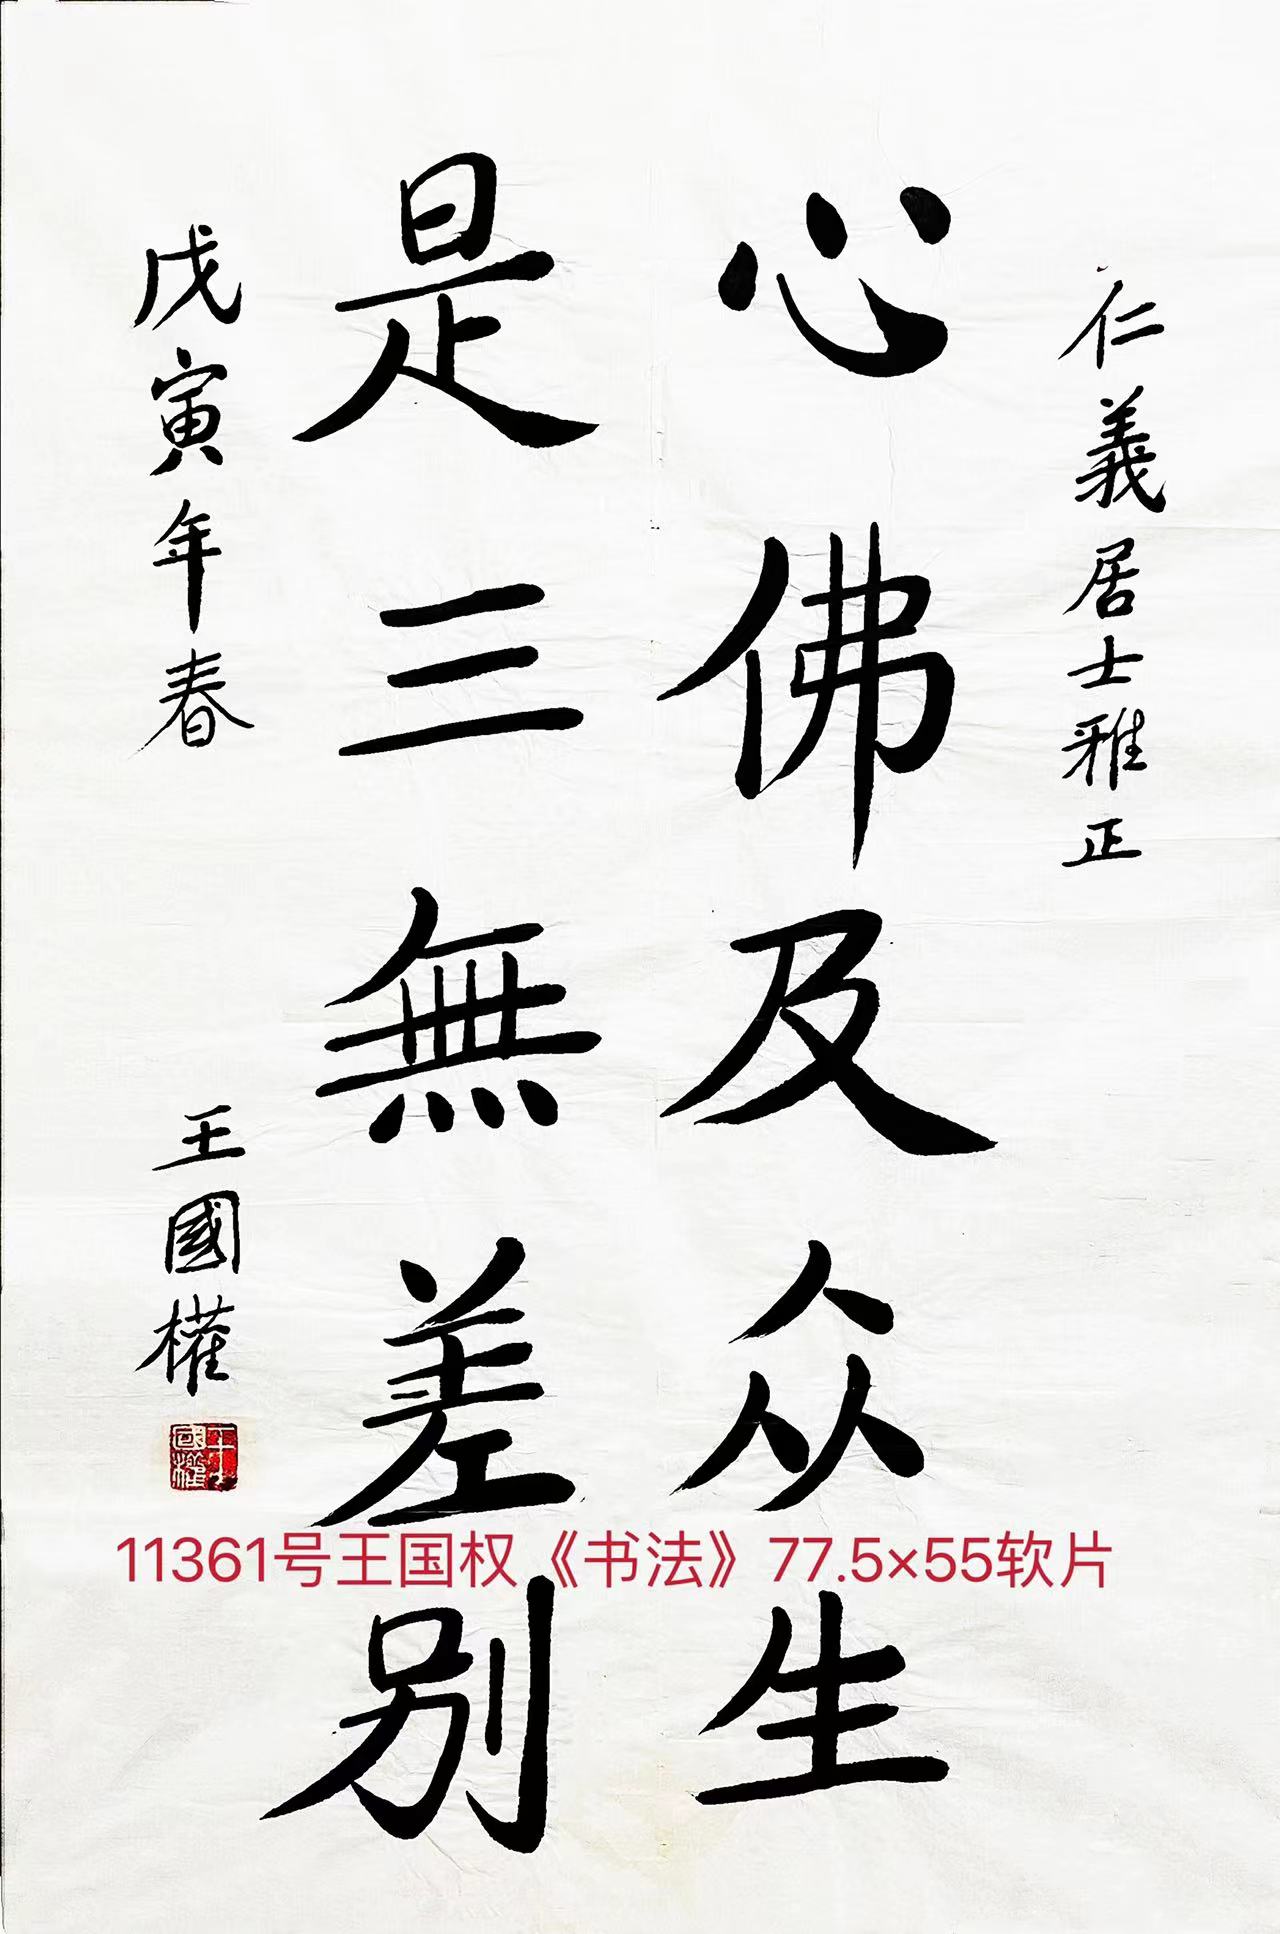 仁義居士雅正
心佛及众生
是三無差别
戊寅年春
王國權
王國權
11361号王国权《书法》77.5×55软片